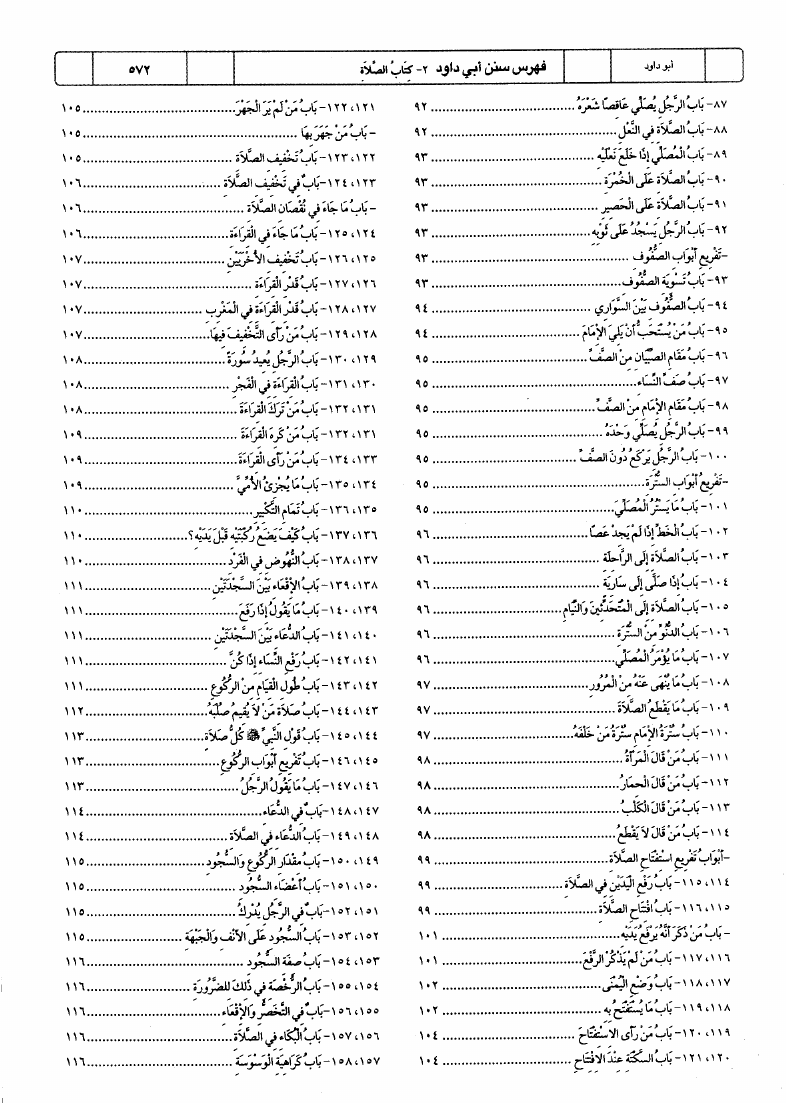 أبو داود
فهرس سنن أبي داود ٢- كِتَابُ الصَّلَاةِ
٥٧٢
٨٧- بَابُ الرَّجُلِ يُصَلِّي عَاقِصًا شَعْرَهُ ........ ٩٢
٨٨- بَابُ الصَّلَاةِ فِي النَّعْلِ ........ ٩٢
٨٩- بَابُ الْمُصَلِّي إِذَا خَلَعَ نَعْلَيْهِ ........ ٩٣
٩٠- بَابُ الصَّلَاةِ عَلَى الْخُمْرَةِ ........ ٩٣
٩١- بَابُ الصَّلَاةِ عَلَى الْحَصِيرِ ........ ٩٣
٩٢- بَابُ الرَّجُلِ يَسْجُدُ عَلَى ثَوْبِهِ ........ ٩٣
-تَفْرِيعِ أَبْوَابِ الصُّفُوفِ ........ ٩٣
٩٣- بَابُ تَسْوِيَةِ الصُّفُوفِ ........ ٩٣
٩٤- بَابُ الصُّفُوفِ بَيْنَ السَّوَارِي ........ ٩٤
٩٥- بَابُ مَنْ يُسْتَحَبُّ أَنْ يَلِيَ الْإِمَامَ ........ ٩٤
٩٦- بَابُ مَقَامِ الصِّبْيَانِ مِنَ الصَّفِّ ........ ٩٥
٩٧- بَابُ صَفِّ النِّسَاءِ ........ ٩٥
٩٨- بَابُ مَقَامِ الْإِمَامِ مِنَ الصَّفِّ ........ ٩٥
٩٩- بَابُ الرَّجُلِ يُصَلِّي وَحْدَهُ ........ ٩٥
١٠٠- بَابُ الرَّجُلِ يَرْكَعُ دُونَ الصَّفِّ ........ ٩٥
-تَفْرِيعِ أَبْوَابِ السُّتْرَةِ ........ ٩٥
١٠١- بَابُ مَا يَسْتُرُ الْمُصَلِّيَ ........ ٩٥
١٠٢- بَابُ الْخَطِّ إِذَا لَمْ يَجِدْ عَصًا ........ ٩٦
١٠٣- بَابُ الصَّلَاةِ إِلَى الرَّاحِلَةِ ........ ٩٦
١٠٤- بَابُ إِذَا صَلَّى إِلَى سَارِيَةٍ ........ ٩٦
١٠٥- بَابُ الصَّلَاةِ إِلَى الْمُتَحَدِّثِينَ وَالنِّيَامِ ........ ٩٦
١٠٦- بَابُ الدُّنُوِّ مِنَ السُّتْرَةِ ........ ٩٦
١٠٧- بَابُ مَا يُؤْمَرُ الْمُصَلِّي ........ ٩٦
١٠٨- بَابُ مَا يُنْهَى عَنْهُ مِنَ الْمُرُورِ ........ ٩٧
١٠٩- بَابُ مَا يَقْطَعُ الصَّلَاةَ ........ ٩٧
١١٠- بَابُ سُتْرَةُ الْإِمَامِ سُتْرَةُ مَنْ خَلْفَهُ ........ ٩٧
١١١- بَابُ مَنْ قَالَ الْمَرْأَةُ ........ ٩٨
١١٢- بَابُ مَنْ قَالَ الْحِمَارُ ........ ٩٨
١١٣- بَابُ مَنْ قَالَ الْكَلْبُ ........ ٩٨
١١٤- بَابُ مَنْ قَالَ لَا يَقْطَعُ ........ ٩٨
-أَبْوَابُ تَفْرِيعِ اسْتِفْتَاحِ الصَّلَاةِ ........ ٩٩
١١٤، ١١٥- بَابُ رَفْعِ الْيَدَيْنِ فِي الصَّلَاةِ ........ ٩٩
١١٥، ١١٦- بَابُ افْتِتَاحِ الصَّلَاةِ ........ ٩٩
- بَابُ مَنْ ذَكَرَ أَنَّهُ يَرْفَعُ يَدَيْهِ ........ ١٠١
١١٦، ١١٧- بَابُ مَنْ لَمْ يَذْكُرِ الرَّفْعَ ........ ١٠١
١١٧، ١١٨- بَابُ وَضْعِ الْيُمْنَى ........ ١٠٢
١١٨، ١١٩- بَابُ مَا يُسْتَفْتَحُ بِهِ ........ ١٠٢
١١٩، ١٢٠- بَابُ مَنْ رَأَى الِاسْتِفْتَاحَ ........ ١٠٤
١٢٠، ١٢١- بَابُ السَّكْتَةِ عِنْدَ الِافْتِتَاحِ ........ ١٠٤
١٢١، ١٢٢- بَابُ مَنْ لَمْ يَرَ الْجَهْرَ ........ ١٠٥
- بَابُ مَنْ جَهَرَ بِهَا ........ ١٠٥
١٢٢، ١٢٣- بَابُ تَخْفِيفِ الصَّلَاةِ ........ ١٠٥
١٢٣، ١٢٤- بَابٌ فِي تَخْفِيفِ الصَّلَاةِ ........ ١٠٦
- بَابُ مَا جَاءَ فِي نُقْصَانِ الصَّلَاةِ ........ ١٠٦
١٢٤، ١٢٥- بَابُ مَا جَاءَ فِي الْقِرَاءَةِ ........ ١٠٦
١٢٥، ١٢٦- بَابُ تَخْفِيفِ الْأُخْرَيَيْنِ ........ ١٠٧
١٢٦، ١٢٧- بَابُ قَدْرِ الْقِرَاءَةِ ........ ١٠٧
١٢٧، ١٢٨- بَابُ قَدْرِ الْقِرَاءَةِ فِي الْمَغْرِبِ ........ ١٠٧
١٢٨، ١٢٩- بَابُ مَنْ رَأَى التَّخْفِيفَ فِيهَا ........ ١٠٧
١٢٩، ١٣٠- بَابُ الرَّجُلِ يُعِيدُ سُورَةً ........ ١٠٨
١٣٠، ١٣١- بَابُ الْقِرَاءَةِ فِي الْفَجْرِ ........ ١٠٨
١٣١، ١٣٢- بَابُ مَنْ تَرَكَ الْقِرَاءَةَ ........ ١٠٨
١٣١، ١٣٢- بَابُ مَنْ كَرِهَ الْقِرَاءَةَ ........ ١٠٩
١٣٣، ١٣٤- بَابُ مَنْ رَأَى الْقِرَاءَةَ ........ ١٠٩
١٣٤، ١٣٥- بَابُ مَا يُجْزِئُ الْأُمِّيَّ ........ ١٠٩
١٣٥، ١٣٦- بَابُ تَمَامِ التَّكْبِيرِ ........ ١١٠
١٣٦، ١٣٧- بَابُ كَيْفَ يَضَعُ رُكْبَتَيْهِ قَبْلَ يَدَيْهِ؟ ........ ١١٠
١٣٧، ١٣٨- بَابُ النُّهُوضِ فِي الْفَرْدِ ........ ١١٠
١٣٨، ١٣٩- بَابُ الْإِقْعَاءِ بَيْنَ السَّجْدَتَيْنِ ........ ١١١
١٣٩، ١٤٠- بَابُ مَا يَقُولُ إِذَا رَفَعَ ........ ١١١
١٤٠، ١٤١- بَابُ الدُّعَاءِ بَيْنَ السَّجْدَتَيْنِ ........ ١١١
١٤١، ١٤٢- بَابُ رَفْعِ النِّسَاءِ إِذَا كُنَّ ........ ١١١
١٤٢، ١٤٣- بَابُ طُولِ الْقِيَامِ مِنَ الرُّكُوعِ ........ ١١١
١٤٣، ١٤٤- بَابُ صَلَاةِ مَنْ لَا يُقِيمُ صُلْبَهُ ........ ١١٢
١٤٤، ١٤٥- بَابُ قَوْلِ النَّبِيِّ ﷺ كُلُّ صَلَاةٍ ........ ١١٣
١٤٥، ١٤٦- بَابُ تَفْرِيعِ أَبْوَابِ الرُّكُوعِ ........ ١١٣
١٤٦، ١٤٧- بَابُ مَا يَقُولُ الرَّجُلُ ........ ١١٣
١٤٧، ١٤٨- بَابٌ فِي الدُّعَاءِ ........ ١١٤
١٤٨، ١٤٩- بَابُ الدُّعَاءِ فِي الصَّلَاةِ ........ ١١٤
١٤٩، ١٥٠- بَابُ مِقْدَارِ الرُّكُوعِ وَالسُّجُودِ ........ ١١٥
١٥٠، ١٥١- بَابُ أَعْضَاءِ السُّجُودِ ........ ١١٥
١٥١، ١٥٢- بَابٌ فِي الرَّجُلِ يُدْرِكُ ........ ١١٥
١٥٢، ١٥٣- بَابُ السُّجُودِ عَلَى الْأَنْفِ وَالْجَبْهَةِ ........ ١١٥
١٥٣، ١٥٤- بَابُ صِفَةِ السُّجُودِ ........ ١١٦
١٥٤، ١٥٥- بَابُ الرُّخْصَةِ فِي ذَلِكَ لِلضَّرُورَةِ ........ ١١٦
١٥٥، ١٥٦- بَابٌ فِي التَّخَصُّرِ وَالْإِقْعَاءِ ........ ١١٦
١٥٦، ١٥٧- بَابُ الْبُكَاءِ فِي الصَّلَاةِ ........ ١١٦
١٥٧، ١٥٨- بَابُ كَرَاهِيَةِ الْوَسْوَسَةِ ........ ١١٦